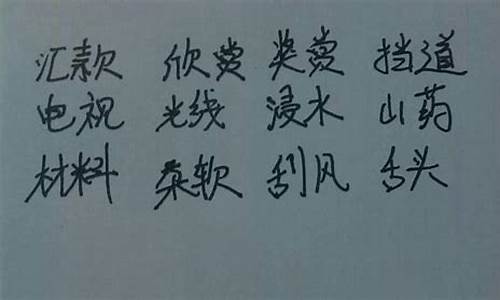 汇款 欣赏 奖赏 挡道
电视 光线 浸水 山药
材料 柔软 刮风 舌头